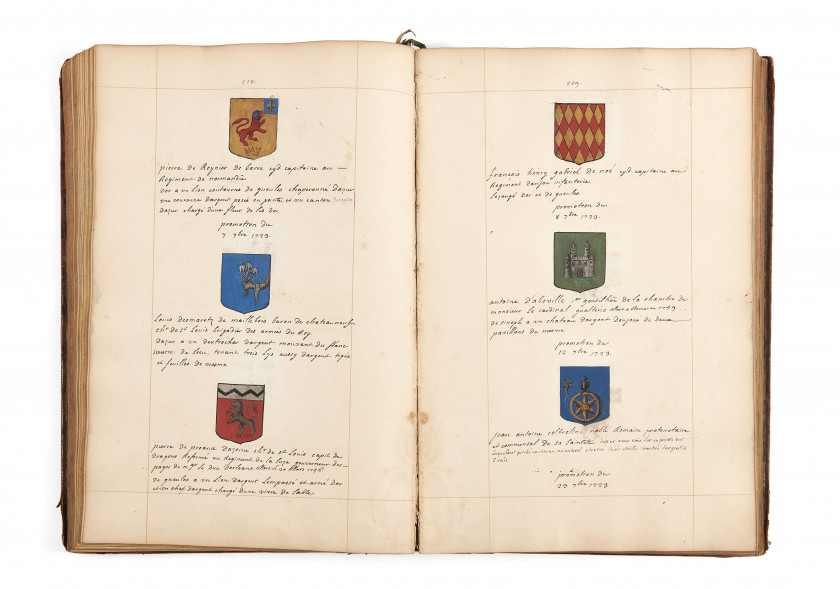 208.
pierre de Reynier de barre eyd capitaine au
Regiment de normandie
dor a un lion contourné de gueules chaperonné dazur
une couronne dargent posée en pointe, et un canton
dazur chargé dune fleur de lis dor.
promotion du
7 7bre 1723.
Louis desmaretz de maillebois baron de chateauneuf
chr. de st Louis brigadier des armées du Roy.
dazur a un dextrochere dargent mouvant du flanc
de lecu, tenant trois lys aussy dargent tigés
et feuillés de mesme
pierre de dazeine chr. de st Louis capit. de
dragons Reformé au Regiment de la gouverneur des
pages de mgr Le duc Dorleans
de gueules a un Lion dargent Lempassé et armé dor
et un chef dargent chargé dune vivre de sable.
209.
francois henry gabriel de noé eyd capitaine au
Regiment danjou infanterie
Lozangé dor et de gueules
promotion du
8 7bre 1723.
antoine D'aboville 1er gentilhōe de la chambre de
monsieur Le cardinal gualterio
de sinople a un chateau dargent donjoné de deux
pavillons de mesme
promotion du
12 7bre 1723.
jean antoine noble Romain protonotaire
et commensal de sa sainteté
promotion du
23 7bre 1723.